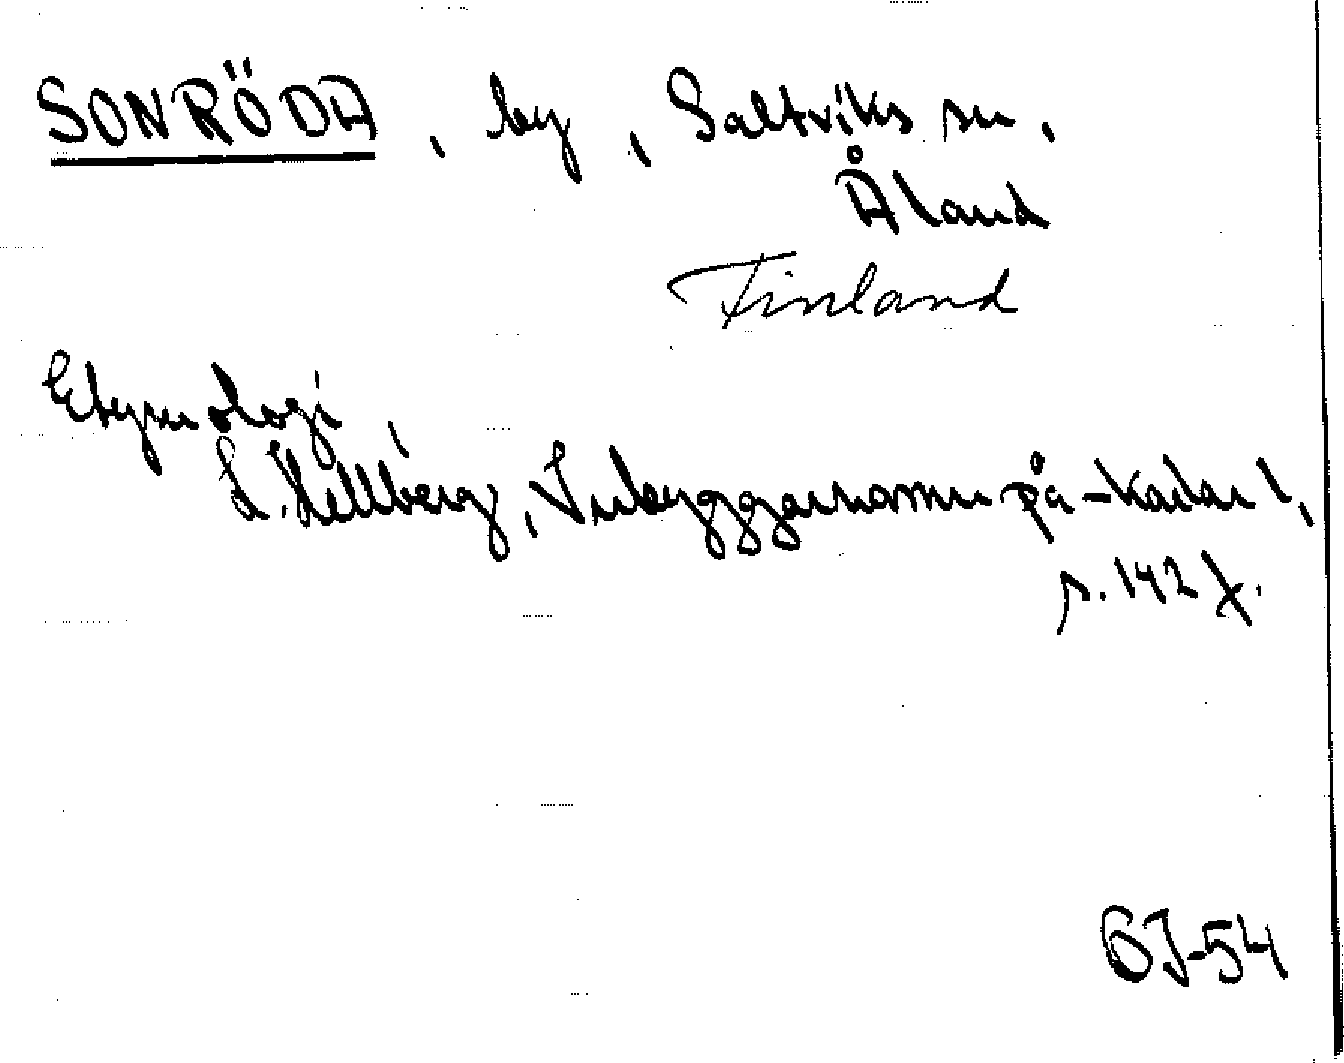 SONRÖDA, by, Saltviks sn,
Åland
Finland
Etymologi,
L. Hellberg, Inbyggarnamn på -karlar,
s. 142 f.
GJ-54